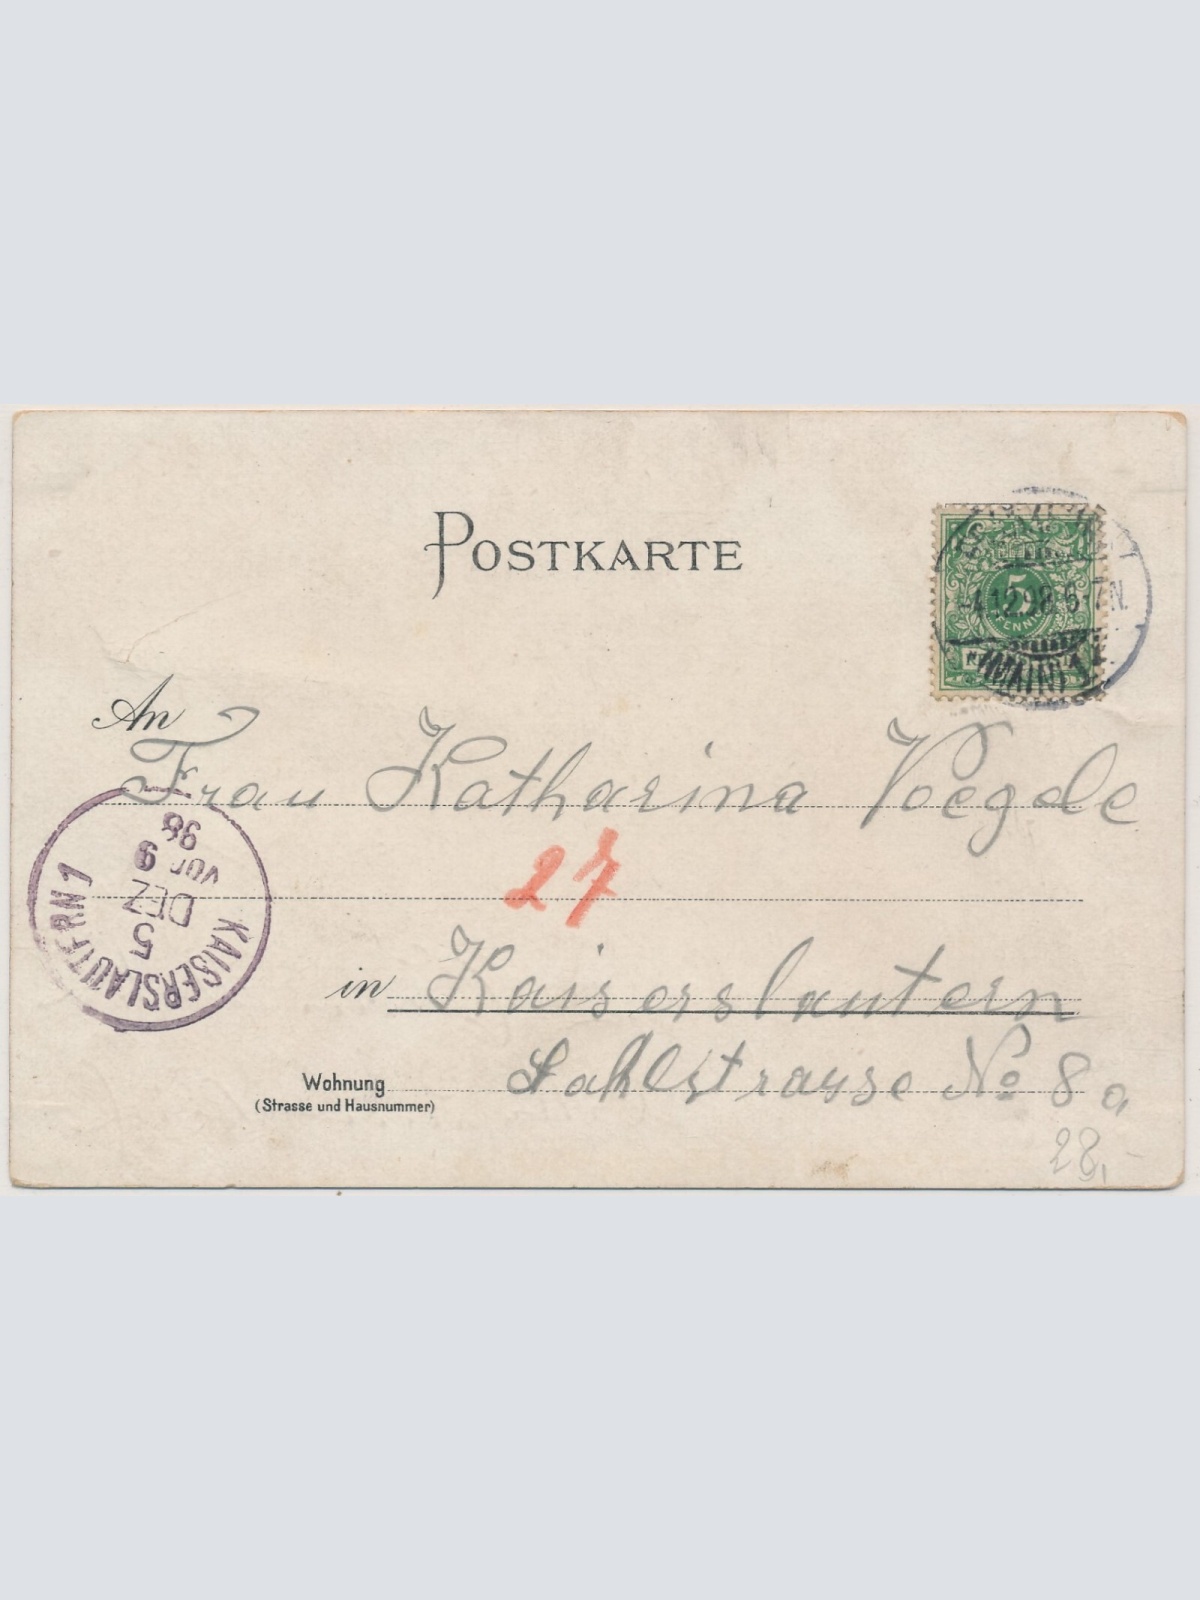 POSTKARTE
5
PFENNIG
4.12.98.6-7N.
(MAIN) 1
An
Frau Katharina Voegele
27
KAISERSLAUTERN 1
5
DEZ
VOR 9
98
in Kaiserslautern
Wohnung
(Strasse und Hausnummer)
No 8a
28,-